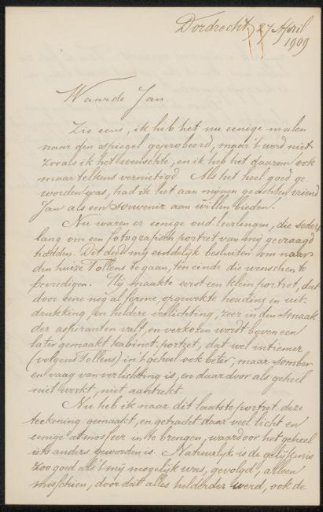 Dordrecht 27 April
1909
Waarde Jan
Zie eens, ik heb het nu eenige malen
naar den spiegel geprobeerd, maar 't werd niet
zooals ik het wenschte, en ik heb het daarom ook
maar telkens vernietigd. Als het heel goed ge
worden was, had ik het aan mijnen vriend
Jan als een souvenir aan willen bieden.
Nu waren er eenige oud leerlingen, die sedert
lang om een fotografisch portret van mij gevraagd
hadden. Dit deed mij eindelijk besluiten om naar
den huize Tollens te gaan, ten einde die menschen te
bevredigen. Hij maakte eerst een klein portret, dat
door eene nog al ferme, opgewekte houding en uit-
drukking, en heldere verlichting, zeer in den smaak
der aspiranten valt, en verkozen wordt boven een
later gemaakt kabinet portret, dat wel intiemer
(volgens Tollens) in 't geheel ook beter, maar somber
en vaag van verlichting is, en daardoor als geheel
niet werkt, niet aantrekt.
Nu heb ik naar dit laatste portret deze
teekening gemaakt, en getracht daar wat licht en
eenige atmosfeer in te brengen, waardoor het geheel
iets anders geworden is. Natuurlijk is de gelijkenis
zoo goed als 't mij mogelijk was, gevolgd, alleen
misschien, doordat alles helderder werd, ook de